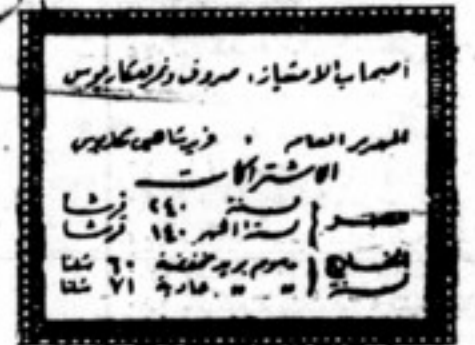 اصحاب الامتياز: صروف ونمر ومكاريوس
المدير العام : فريد شاهين مكاريوس
الاشتراكات
مصر { سنة ٢٤٠ قرشا
ستة اشهر ١٤٠ قرشا
الخارج { برسوم بريد مخفضة ٦٠ شلنا
سنة { عادية ٧١ شلنا